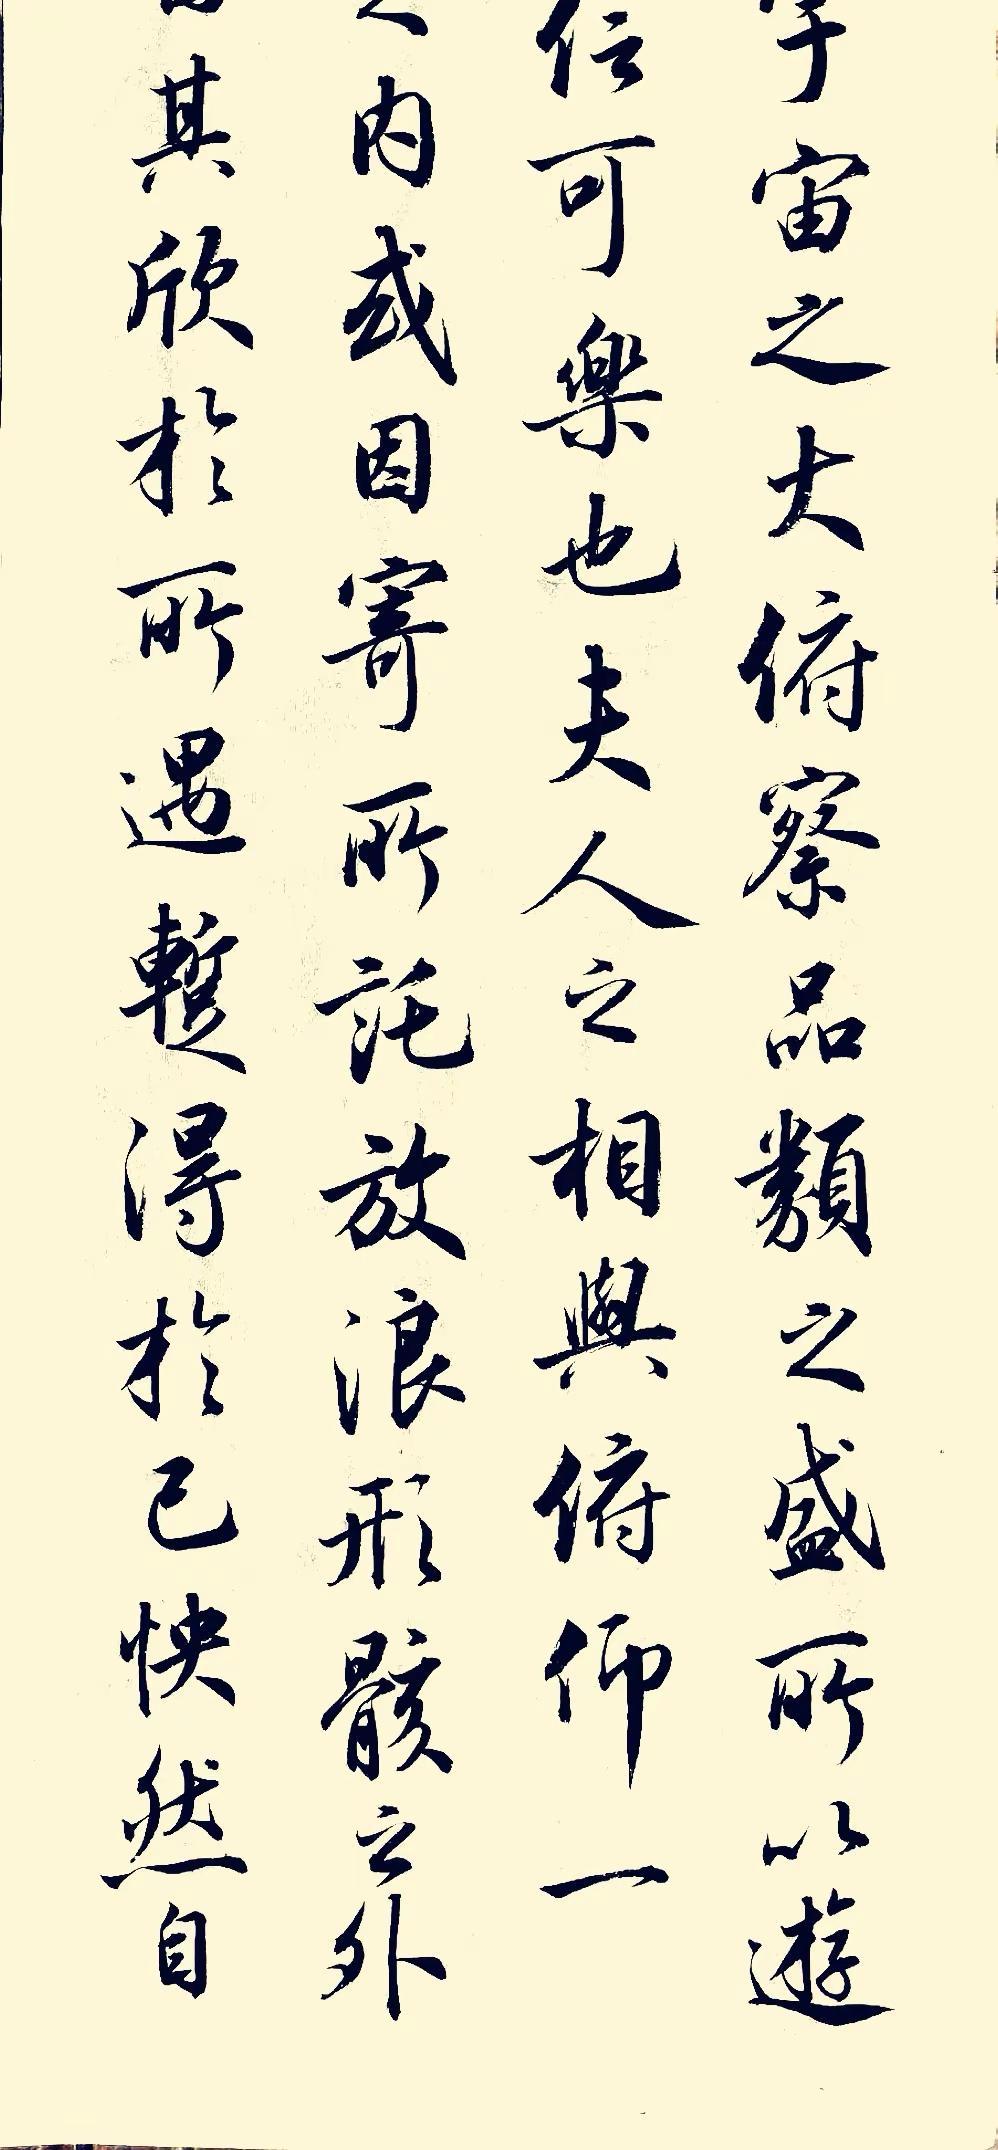 宇宙之大俯察品類之盛所以遊
信可樂也夫人之相與俯仰一
之内或因寄所託放浪形骸之外
當其欣於所遇暫得於己怏然自